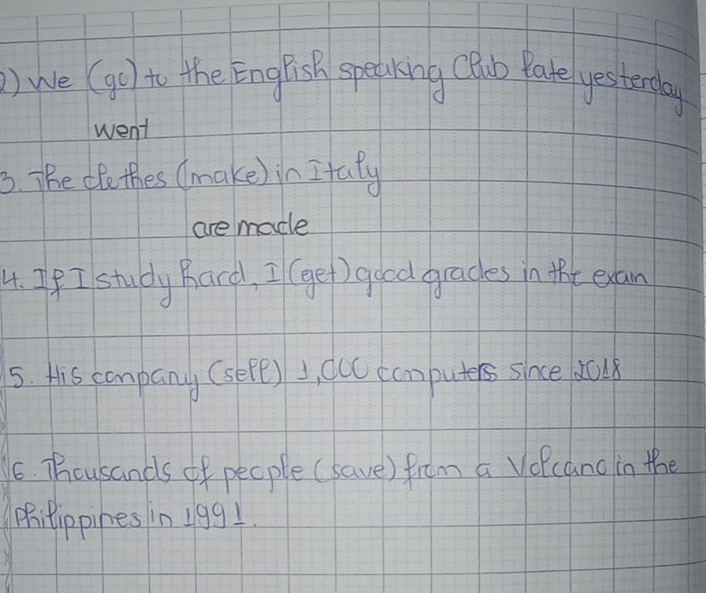 2) We (go) to the English speaking Club late yesterday
went
3. The clothes (make) in Italy
are made
4. If I study hard, I (get) good grades in the exam
5. His company (sell) 1,000 computers since 2018
6. Thousands of people (save) from a Volcano in the
Philippines in 1991.